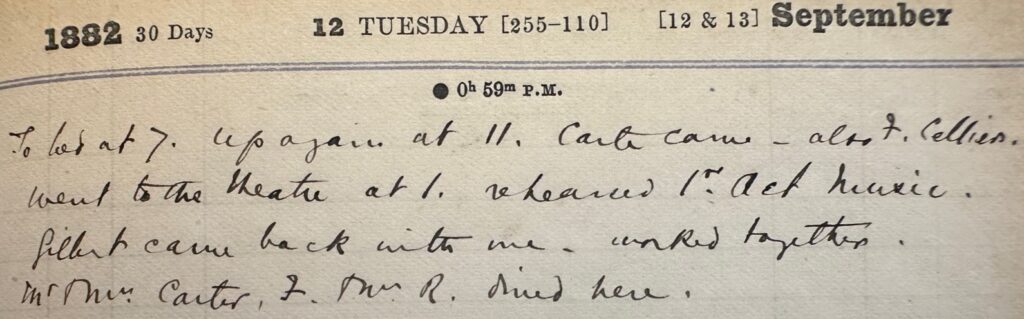 1882 30 Days 12 TUESDAY [255-110] [12 & 13] September
● 0h 59m P.M.
To bed at 7. up again at 11. Carte came - also F. Cellier.
went to the theatre at 1. rehearsed 1st Act music.
Gilbert came back with me - worked together.
Mr & Mrs Carter, F. & Mrs R. dined here.